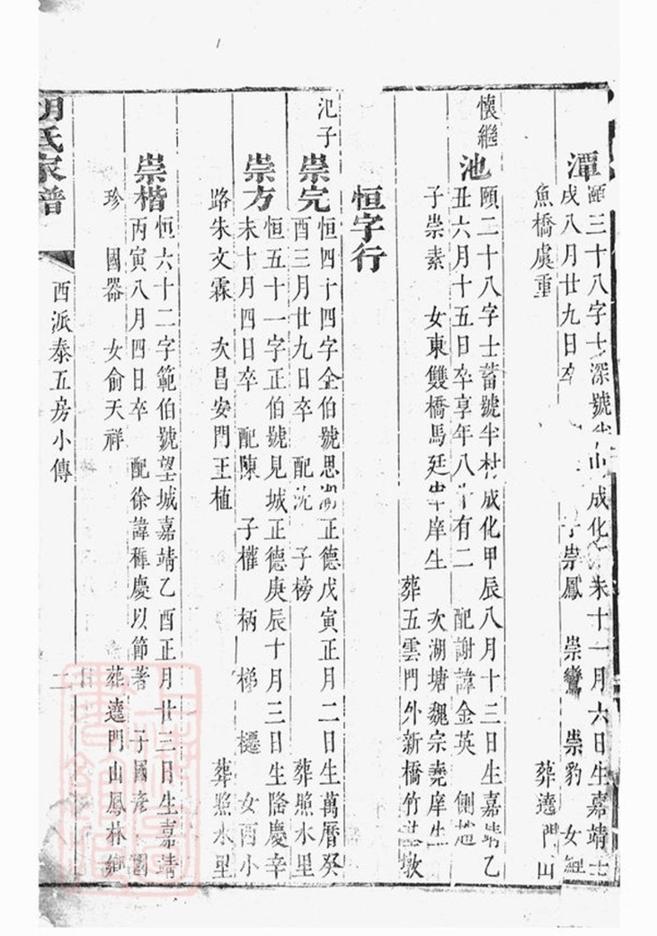 潭
頤三十八字士深號半山成化 未十一月六日生嘉靖壬
戌八月廿九日卒 子崇鳳 崇鸞 崇豹 女
魚橋虞重 葬邊門山
懷繼
池
頤二十八字士蓄號半村成化甲辰八月十三日生嘉靖乙
丑六月十五日卒享年八十有二 配謝諱金英 側趙
子崇素 女東雙橋馬廷 庠生 次湖塘魏宗堯庠生
葬五雲門外新橋竹 墩
恒字行
氾子
崇完
恒四十四字全伯號思湖正德戊寅正月二日生萬曆癸
酉三月廿九日卒 配沈 子榜 葬照水里
崇方
恒五十一字正伯號見城正德庚辰十月三日生隆慶辛
未十月四日卒 配陳 子權 柄 梯 櫏 女西小
路朱文霖 次昌安門王植 葬照水里
崇楷
恒六十二字範伯號望城嘉靖乙酉正月廿三日生嘉靖
丙寅八月四日卒 配徐諱 慶以節著 子國彦 國
珍 國器 女俞天祥 葬邊門山鳳林鄉
胡氏家譜
西派泰五房小傳
二